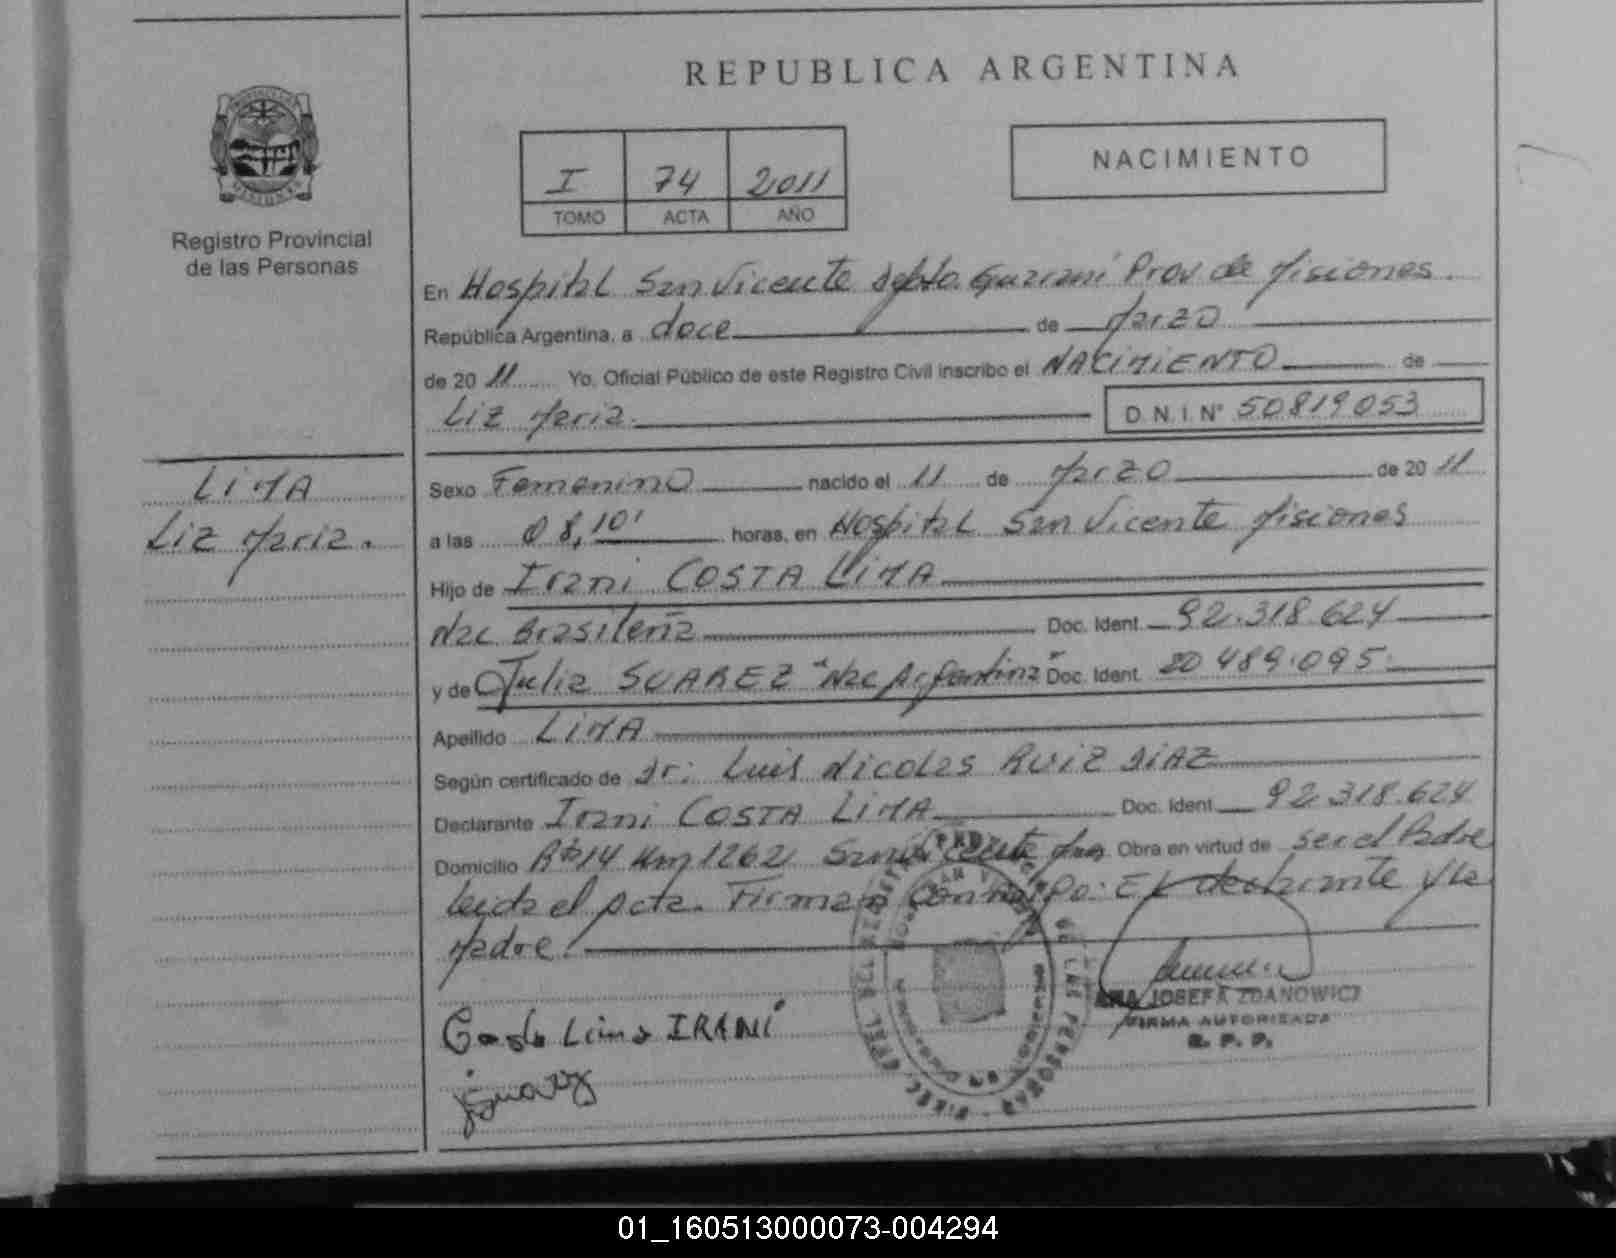 REPUBLICA ARGENTINA
NACIMIENTO
I 74 2011
TOMO ACTA AÑO
Registro Provincial
de las Personas
En Hospital San Vicente Depto. Guarani Prov de Misiones.
República Argentina, a doce de Marzo
de 20 11 Yo, Oficial Público de este Registro Civil inscribo el NACIMIENTO de
Liz Maria. D.N.I. Nº 50819053
LIMA
Liz Maria.
Sexo Femenino nacido el 11 de Marzo de 20 11
a las 08,10' horas, en Hospital San Vicente Misiones
Hijo de Irani COSTA LIMA
Nac Brasileña Doc. Ident. 92.318.624
y de Julia SUAREZ "Nac Argentina" Doc. Ident. 20 489.095.
Apellido LIMA
Según certificado de Dr: Luis Nicolas RUIZ DIAZ
Declarante Irani COSTA LIMA Doc. Ident. 92.318.624
Domicilio Rta 14 Km 1262 San Vicente Mnes Obra en virtud de ser el Padre
leida el acta. Firman Conmigo: El declarante y la
Madre.
Costa Lima IRANI
JSuarez
ANA JOSEFA ZDANOWICZ
FIRMA AUTORIZADA
R. P. P.
01_160513000073-004294